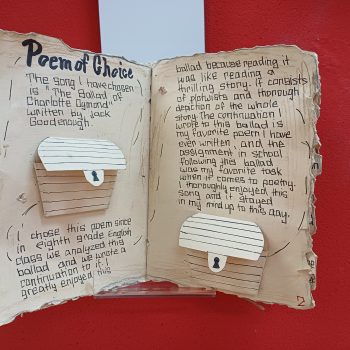 Poem of Choice
The song I have chosen
is "The Ballad of
Charlotte Dymond"
written by Jack
Goodenough.
I chose this poem since
in eighth grade English
class we analyzed this
ballad and we wrote a
continuation to it. I
greatly enjoyed this
ballad because reading it
was like reading a
thrilling story. It consists
of plotwists and thorough
depiction of the whole
story. The continuation I
wrote to this ballad is
my favorite poem I have
even written, and the
assignment in school
following this ballad
was my favorite task
when it comes to poetry.
I thoroughly enjoyed this
song and it stayed
in my mind up to this day.
2